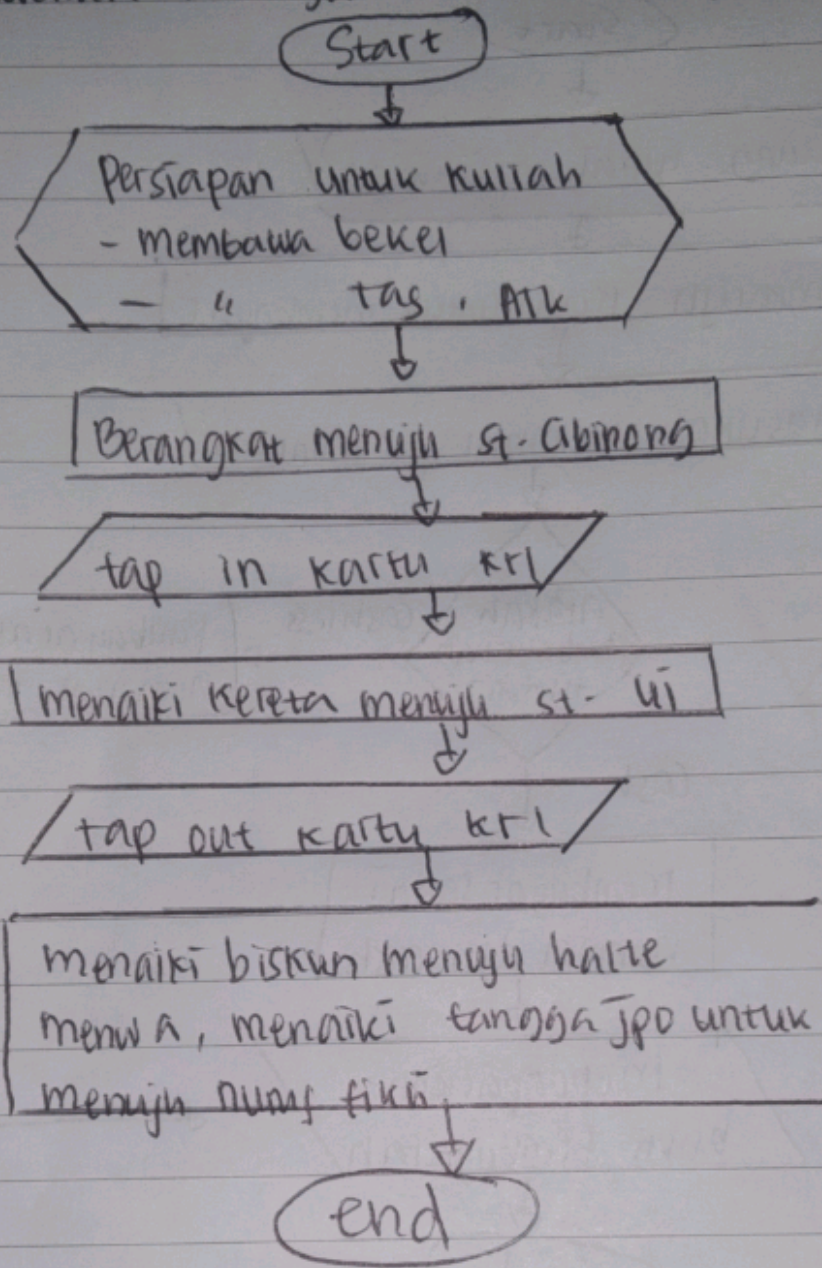 Start
Persiapan untuk kuliah
- membawa bekel
- " tas, ATK
Berangkat menuju st. Cibinong
tap in kartu krl
menaiki kereta menuju st. ui
tap out kartu krl
menaiki biskun menuju halte
menwa, menaiki tangga jpo untuk
menuju
end